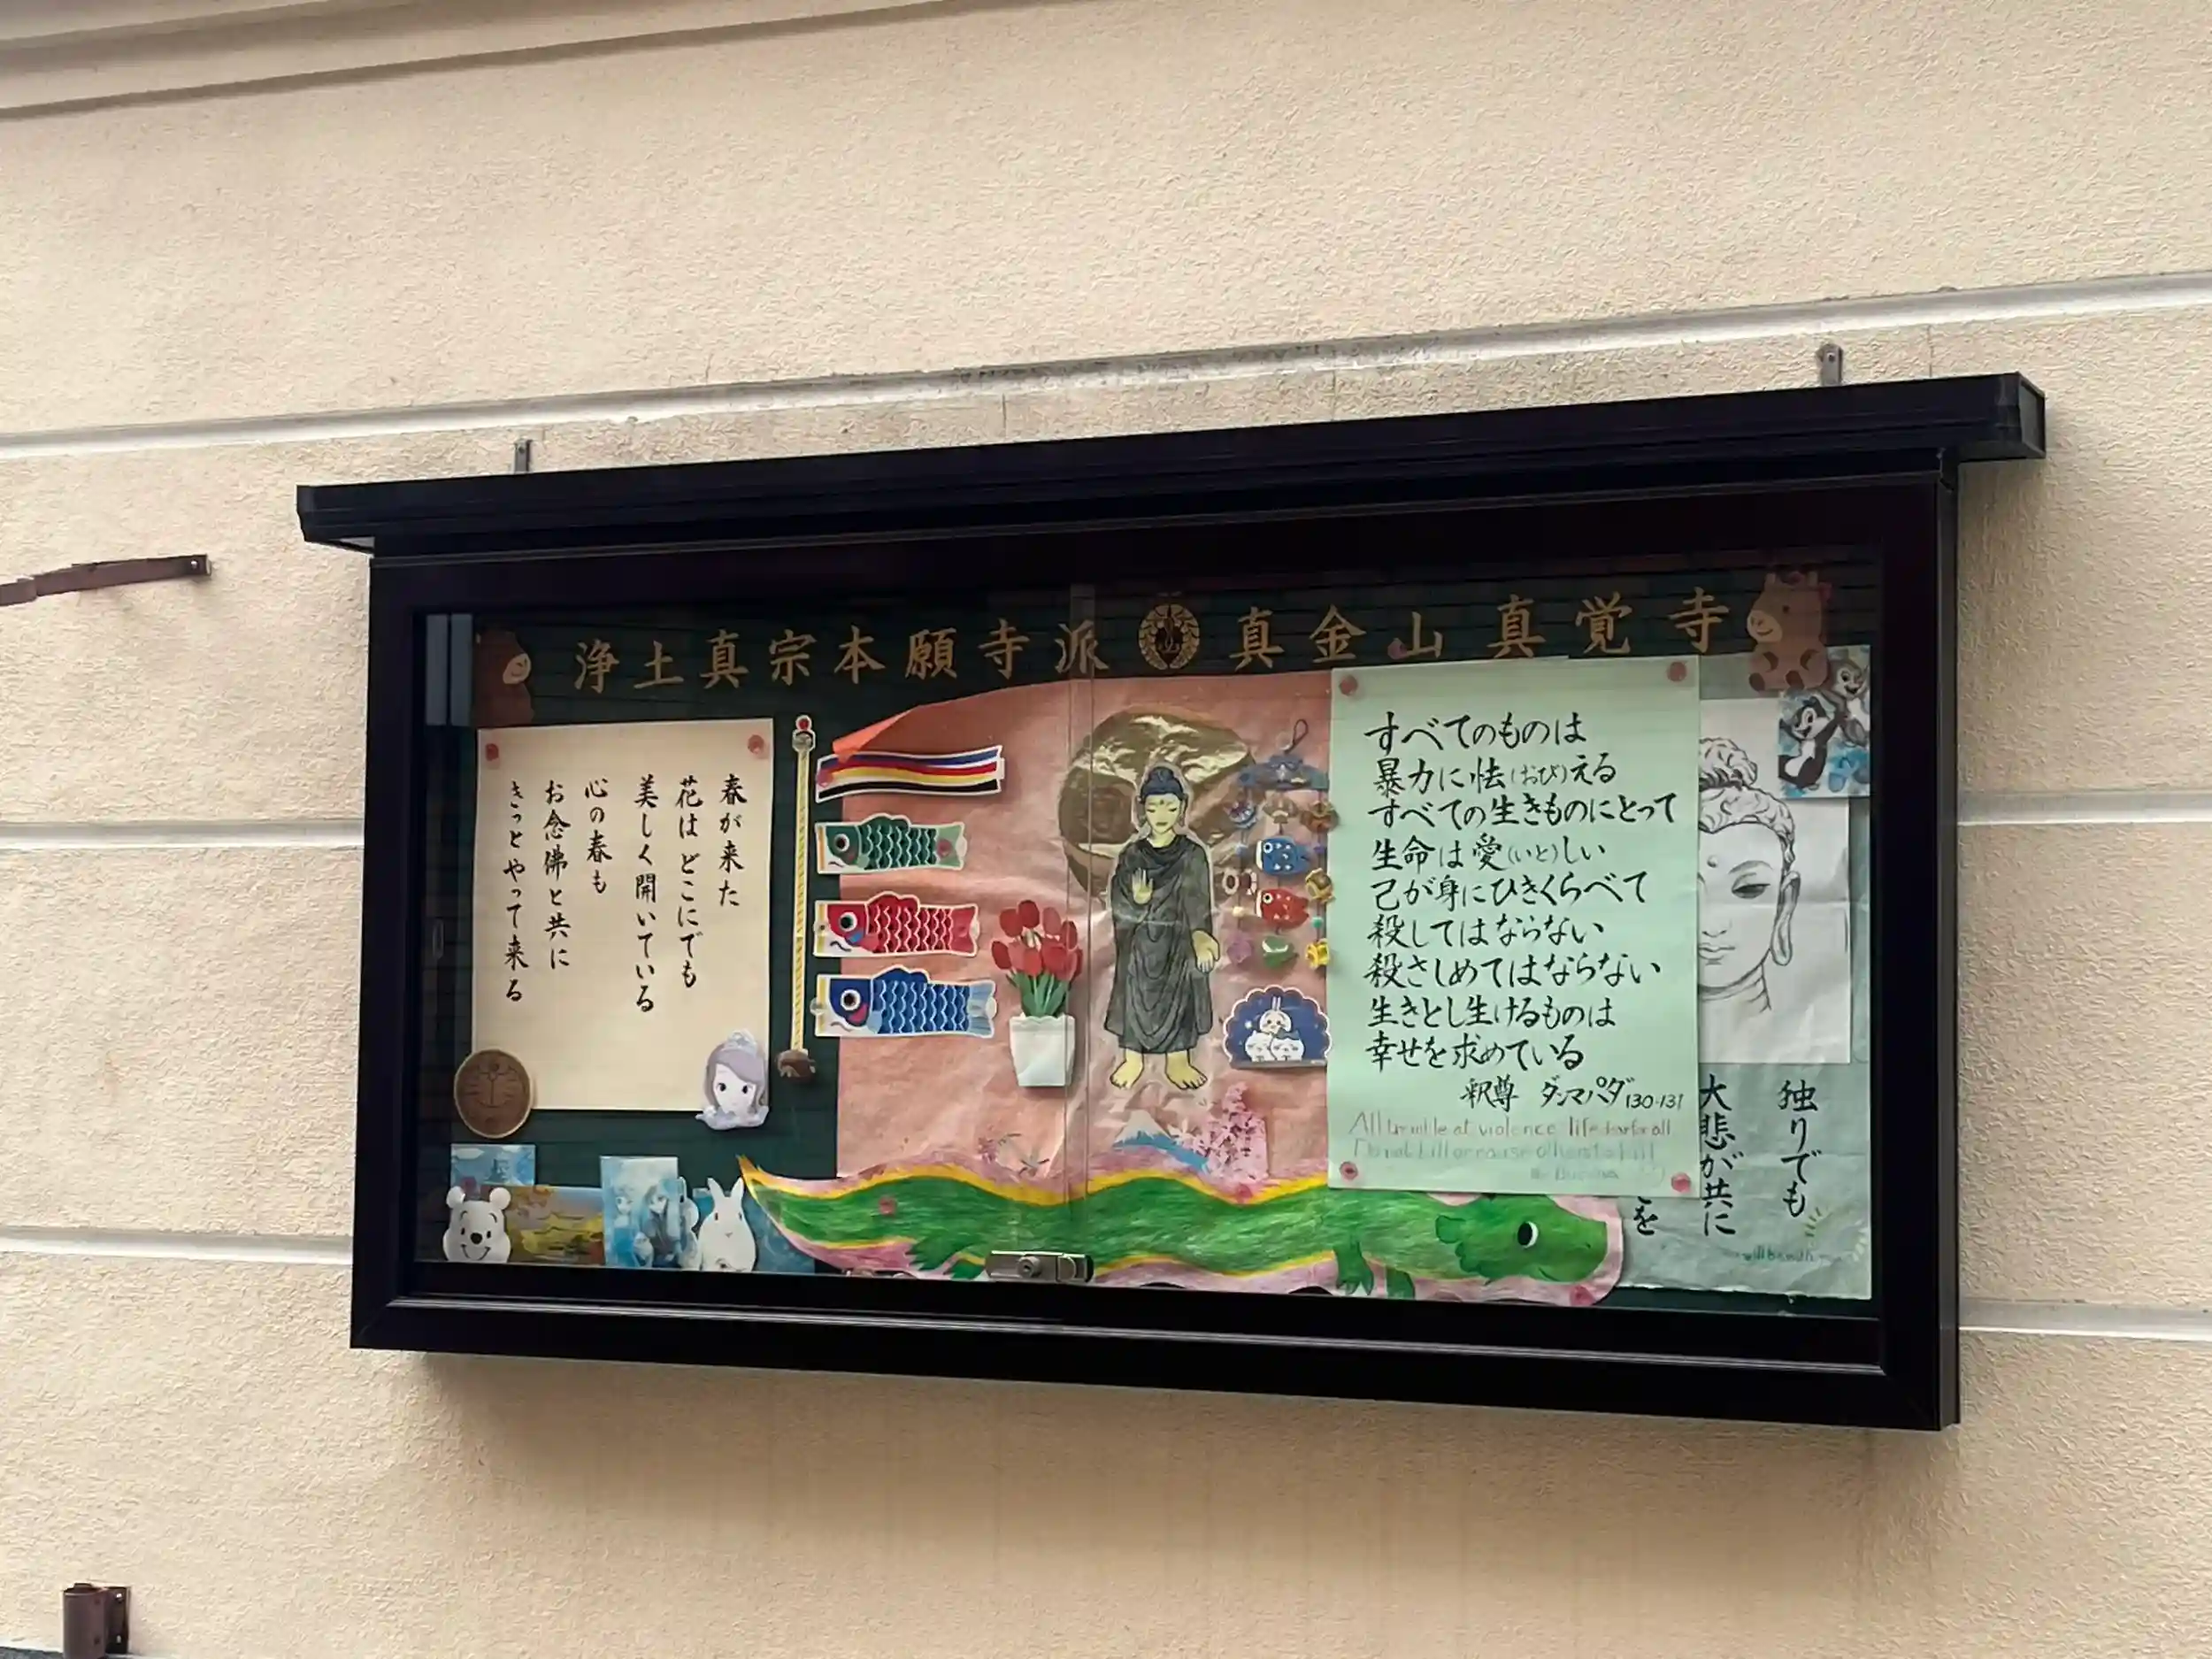 浄土真宗本願寺派 真金山 真覚寺
春が来た
花は どこにでも
美しく開いている
心の春も
お念佛と共に
きっとやって来る
すべてのものは
暴力に怯(おび)える
すべての生きものにとって
生命は愛(いと)しい
己が身にひきくらべて
殺してはならない
殺さしめてはならない
生きとし生けるものは
幸せを求めている
釈尊 ダンマパダ130-131
All tremble at violence life dear for all
Do not kill or cause others to kill
独りでも
大悲が共に
を